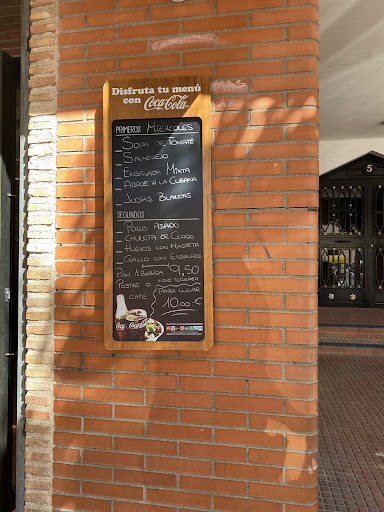 Disfruta tu menú
con Coca-Cola
PRIMEROS MIERCOLES
SOPA DE TOMATE
SALMOREJO
ENSALADA MIXTA
ARROZ A LA CUBANA
JUDIAS BLANCAS
SEGUNDOS
POLLO ASADO
CHULETA DE CERDO
HUEVOS CON PANCETA
GALLO CON ENSALADA
PAN, 1 BEBIDA 9,50
POSTRE O
CAFE
PARA LLEVAR
10.00 €
5